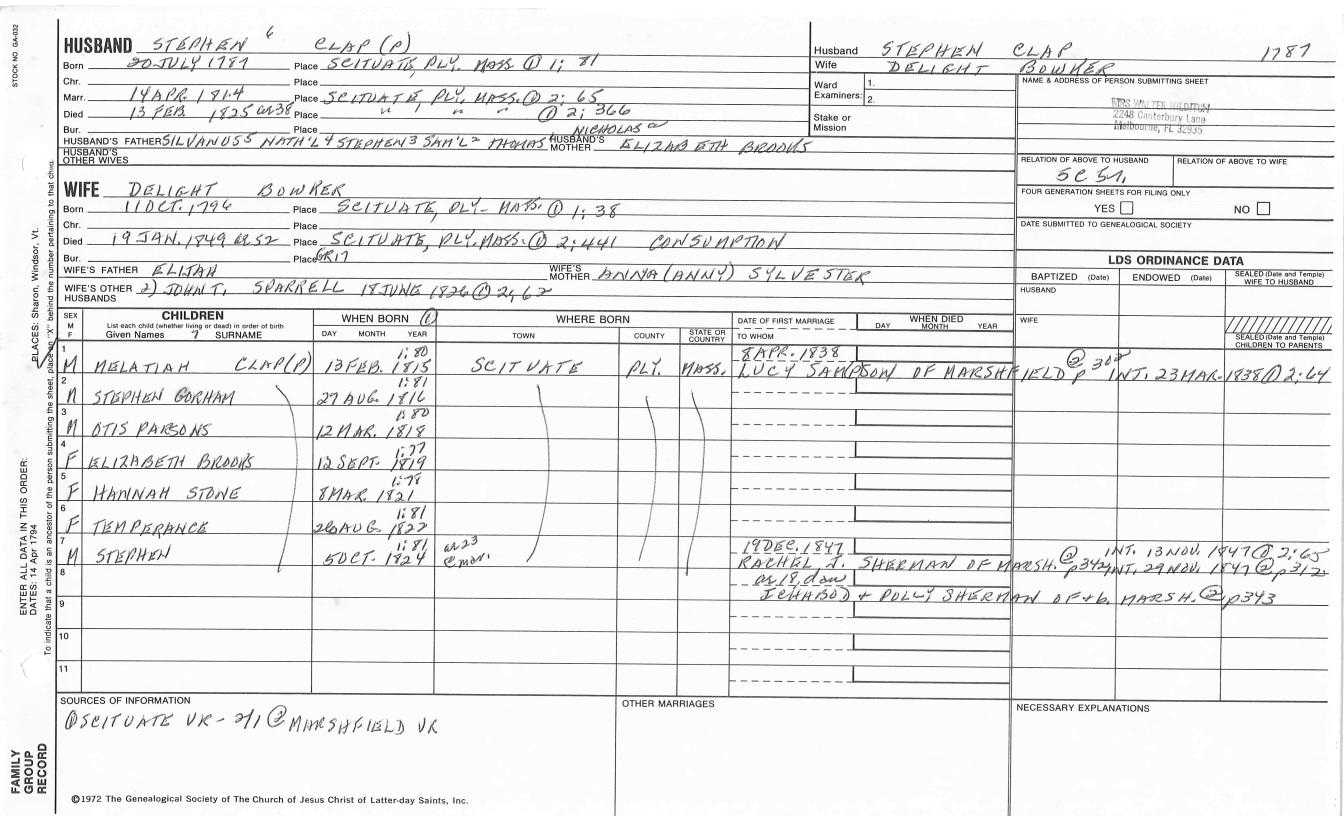 STOCK NO GA-032
HUSBAND STEPHEN 6 CLAP (P)
Born 20 JULY 1787 Place SCITUATE, PLY. MASS ① 1; 81
Chr. Place
Marr. 14 APR. 1814 Place SCITUATE, PLY, MASS. ① 2; 65
Died 13 FEB. 1825 ae 38 Place " " " ① 2; 366
Bur. Place
NICHOLAS
HUSBAND'S FATHER SILVANUS 5 NATH'L 4 STEPHEN 3 SAM'L 2 THOMAS 1 HUSBAND'S MOTHER ELIZABETH BROOKS
HUSBAND'S OTHER WIVES
WIFE DELIGHT BOWKER
Born 11 OCT. 1796 Place SCITUATE, PLY- MASS. ① 1; 38
Chr. Place
Died 19 JAN. 1849 ae 52 Place SCITUATE, PLY. MASS. ① 2; 441 CONSUMPTION
Bur. Place GR17
WIFE'S FATHER ELIJAH WIFE'S MOTHER ANNA (ANNY) SYLVESTER
WIFE'S OTHER HUSBANDS 2) JOHN T. SPARRELL 18 JUNE 1826 ① 2; 62
Husband STEPHEN CLAP 1787
Wife DELIGHT BOWKER
Ward Examiners: 1.
2.
Stake or Mission
NAME & ADDRESS OF PERSON SUBMITTING SHEET
MRS WALTER
2248 Canterbury Lane
Melbourne, FL 32935
RELATION OF ABOVE TO HUSBAND RELATION OF ABOVE TO WIFE
5C
FOUR GENERATION SHEETS FOR FILING ONLY
YES NO
DATE SUBMITTED TO GENEALOGICAL SOCIETY
LDS ORDINANCE DATA
BAPTIZED (Date) ENDOWED (Date) SEALED (Date and Temple) WIFE TO HUSBAND
HUSBAND
WIFE
SEALED (Date and Temple) CHILDREN TO PARENTS
SEX M F CHILDREN List each child (whether living or dead) in order of birth Given Names 7 SURNAME
WHEN BORN ① DAY MONTH YEAR
WHERE BORN TOWN COUNTY STATE OR COUNTRY
DATE OF FIRST MARRIAGE TO WHOM
WHEN DIED DAY MONTH YEAR
1 1; 80 8 APR. 1838 @ p 302
M MELATIAH CLAP(P) 13 FEB. 1815 SCITUATE PLY. MASS. LUCY SAMPSON OF MARSHFIELD INT. 23 MAR. 1838 ① 2; 64
2 1; 81
M STEPHEN GORHAM 27 AUG. 1816
3 1; 80
M OTIS PARSONS 12 MAR. 1818
4 1; 77
F ELIZABETH BROOKS 12 SEPT. 1819
5 1; 78
F HANNAH STONE 8 MAR. 1821
6 1; 81
F TEMPERANCE 26 AUG. 1822
7 1; 81 ae 23 19 DEC. 1847 INT. 13 NOV. 1847 ① 2; 65
M STEPHEN 5 OCT. 1824 @ mar. RACHEL J. SHERMAN OF MARSH. ② p342 INT. 29 NOV. 1847 ② p312
8 ae 18, dau
ICHABOD & POLLY SHERMAN OF MARSH. ② p343
9
10
11
SOURCES OF INFORMATION
① SCITUATE VR - 2/1 ② MARSHFIELD VR
OTHER MARRIAGES
NECESSARY EXPLANATIONS
©1972 The Genealogical Society of The Church of Jesus Christ of Latter-day Saints, Inc.
FAMILY GROUP RECORD
ENTER ALL DATA IN THIS ORDER:
DATES: 14 Apr 1794
PLACES: Sharon, Windsor, Vt.
To indicate that a child is an ancestor of the person submitting the sheet, place an "X" behind the number pertaining to that child.